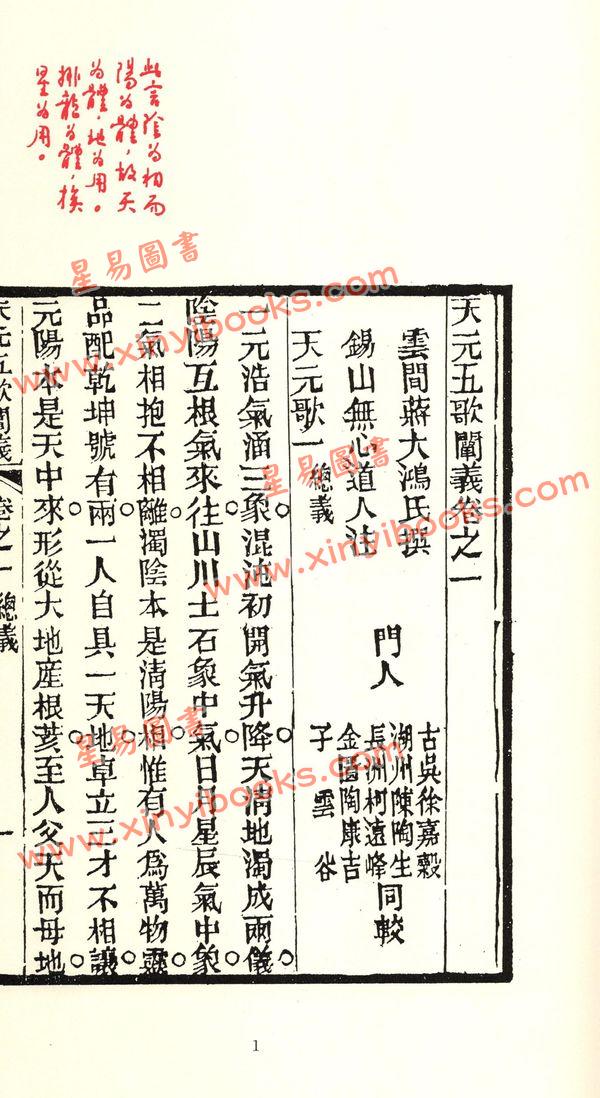 此言陰為相而
陽為體，故天
為體，地為用。
排龍為體，挨
星為用。
天元五歌闡義卷之一
雲間蔣大鴻氏撰
錫山無心道人注
門人
古吳徐嘉穀
湖州陳陶生
長洲柯遠峰
金匱陶康吉
子雲谷
同較
天元歌一 總義
一元浩氣涵三象○混沌初開氣升降○天清地濁成兩儀○
陰陽互根氣來往○山川土石象中氣○日月星辰氣中象○
二氣相抱不相離○濁陰本是清陽相○惟有人為萬物靈○
品配乾坤號有兩○一人自具一天地○卓立三才不相讓○
元陽本是天中來○形從大地産根荄○至人父天而母地○
天元五歌闡義 卷之一 總義 一
1
星易圖書
www.xinyibooks.com
星易圖書
www.xinyibooks.com
星易圖書
www.xinyibooks.com